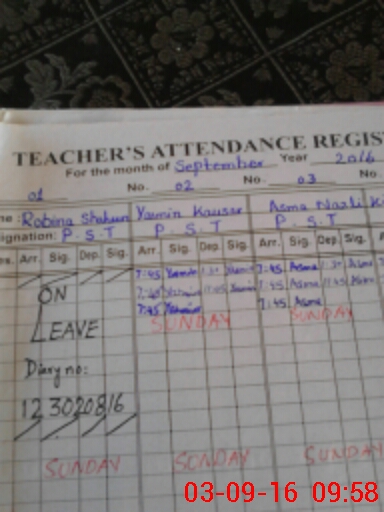 TEACHER'S ATTENDANCE REGIS
For the month of September Year 2016
01 No. 02 No. 03 No.
me: Robina Shaheen Yasmin Kausar Asma Naz
signation: P.S.T P.S.T P.S.T
Arr. Sig. Dep. Sig. Arr. Sig. Dep. Sig. Arr. Sig. Dep. Sig. Arr.
7:45 Yasmin 7:45 Asma Asma
ON 7:45 Yasmin 11:45 7:45 Asma 11:45 Asma
7:45 Yasmin 7:45 Asma
LEAVE SUNDAY SUNDAY
Diary no:
123020816
SUNDAY SUNDAY SUNDAY
03-09-16 09:58